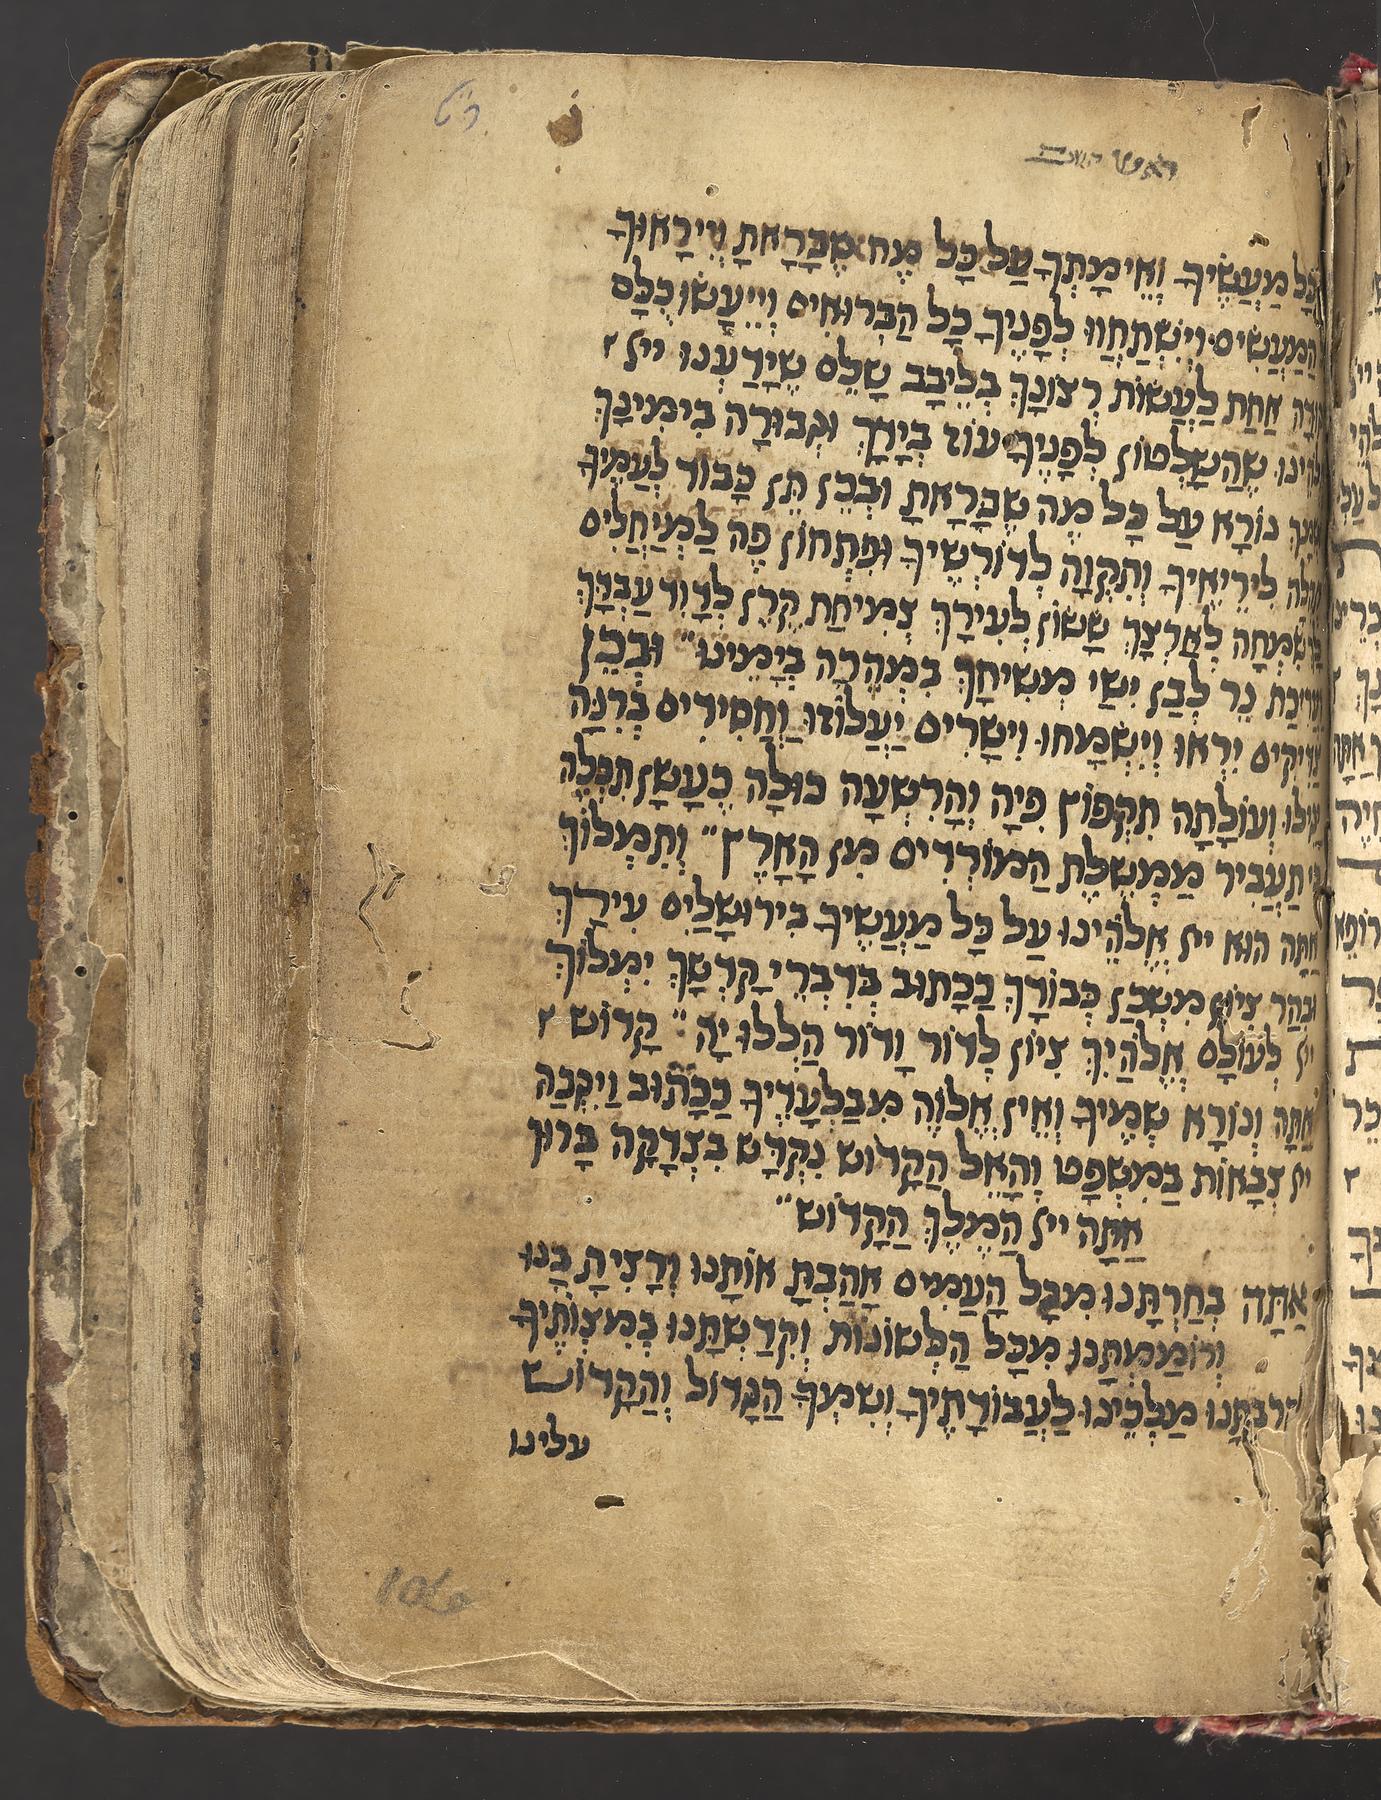 ראש השנה
כׇל מַעֲשֶׂיךָ וְאֵימָתְךָ עַל כָּל מֶה שֶׁבָּרָאתָ וְיִרָאוּךָ
הַמַעֲשִׂים וְיִשְׁתַחֲווּ לְפָנֶיךָ כָל הַבְּרוּאִים וְיֵיעָשׂוּ כֻלָּם
אֲגוּדָה אַחַת לַעֲשׂוֹת רְצוֹנָךְ בְּלֵיבָב שָׁלֵם שֶׁיָּדַעְנוּ ייי
אֱלֹהֵינוּ שֶׁהַשָּׁלְטוֹן לְפָנֶיךָ עוֹז בְּיָדָךְ וּגְבוּרָה בִימִינָךְ
וְשִׁמְךָ נוֹרָא עַל כָּל מֶה שֶׁבָּרָאתָ וּבְכֵן תֵּן כָּבוֹד לְעַמֶּיךָ
תְּהִלָּה לִירֵיאֶיךָ וְתִקְוָה לְדוֹרְשֶׁיךָ וּפִתְחוֹן פֶּה לַמְיַחֲלִים
לָךְ שִׂמְחָה לְאַרְצָךְ שָׂשׂוֹן לְעִירָךְ צְמִיחַת קֶרֶן לְדָוִד עַבְדָּךְ
וַעֲרִיכַת נֵר לְבֶן יִשַׁי מְשִׁיחָךְ בִּמְהֵרָה בְיָמֵינוּ וּבְכֵן
צַדִּיקִים יִרְאוּ וְיִשְׂמָחוּ וִישָׁרִים יַעֲלוֹזוּ וַחֲסִידִים בְּרִנָּה
יָגִילוּ וְעוֹלָתָה תִקְפּוֹץ פִּיהָ וְהָרִשְׁעָה כוּלָּהּ כְעָשָׁן תִּכְלֶה
כִּי תַעֲבִיר מַמְשֶׁלֶת הַמּוֹרְדִים מִן הָאָרֶץ וְתִמְלוֹךְ
אַתָּה הוּא ייי אֱלֹהֵינוּ עַל כָּל מַעֲשֶׂיךָ בִּירוּשָׁלַיִם עִירָךְ
וּבְהַר צִיּוֹן מִשְׁכַּן כְּבוֹדָךְ כַּכָּתוּב בְּדִבְרֵי קָדְשָׁךְ יִמְלוֹךְ
ייי לְעוֹלָם אֱלֹהַיִךְ צִיּוֹן לְדוֹר וָדוֹר הַלְלוּ יָהּ קָדוֹשׁ
אַתָּה וְנוֹרָא שְׁמֶיךָ וְאֵין אֱלוֹהַּ מִבַּלְעָדֶיךָ כַּכָּתוּב וַיִּגְבַּהּ
ייי צְבָאוֹת בַּמִּשְׁפָּט וְהָאֵל הַקָּדוֹשׁ נִקְדָּשׁ בִּצְדָקָה בָּרוּךְ
אַתָּה ייי הַמֶּלֶךְ הַקָּדוֹשׁ
אַתָּה בְּחַרְתָּנוּ מִכָּל הָעַמִּים אָהַבְתָּ אוֹתָנוּ וְרָצִיתָ בָּנוּ
וְרוֹמַמְתָּנוּ מִכָּל הַלְּשׁוֹנוֹת וְקִדַּשְׁתָּנוּ בְּמִצְוֹתֶיךָ
קֵרַבְתָּנוּ מַלְכֵּינוּ לַעֲבוֹדָתֶיךָ וְשִׁמְךָ הַגָּדוֹל וְהַקָּדוֹשׁ
עלינו